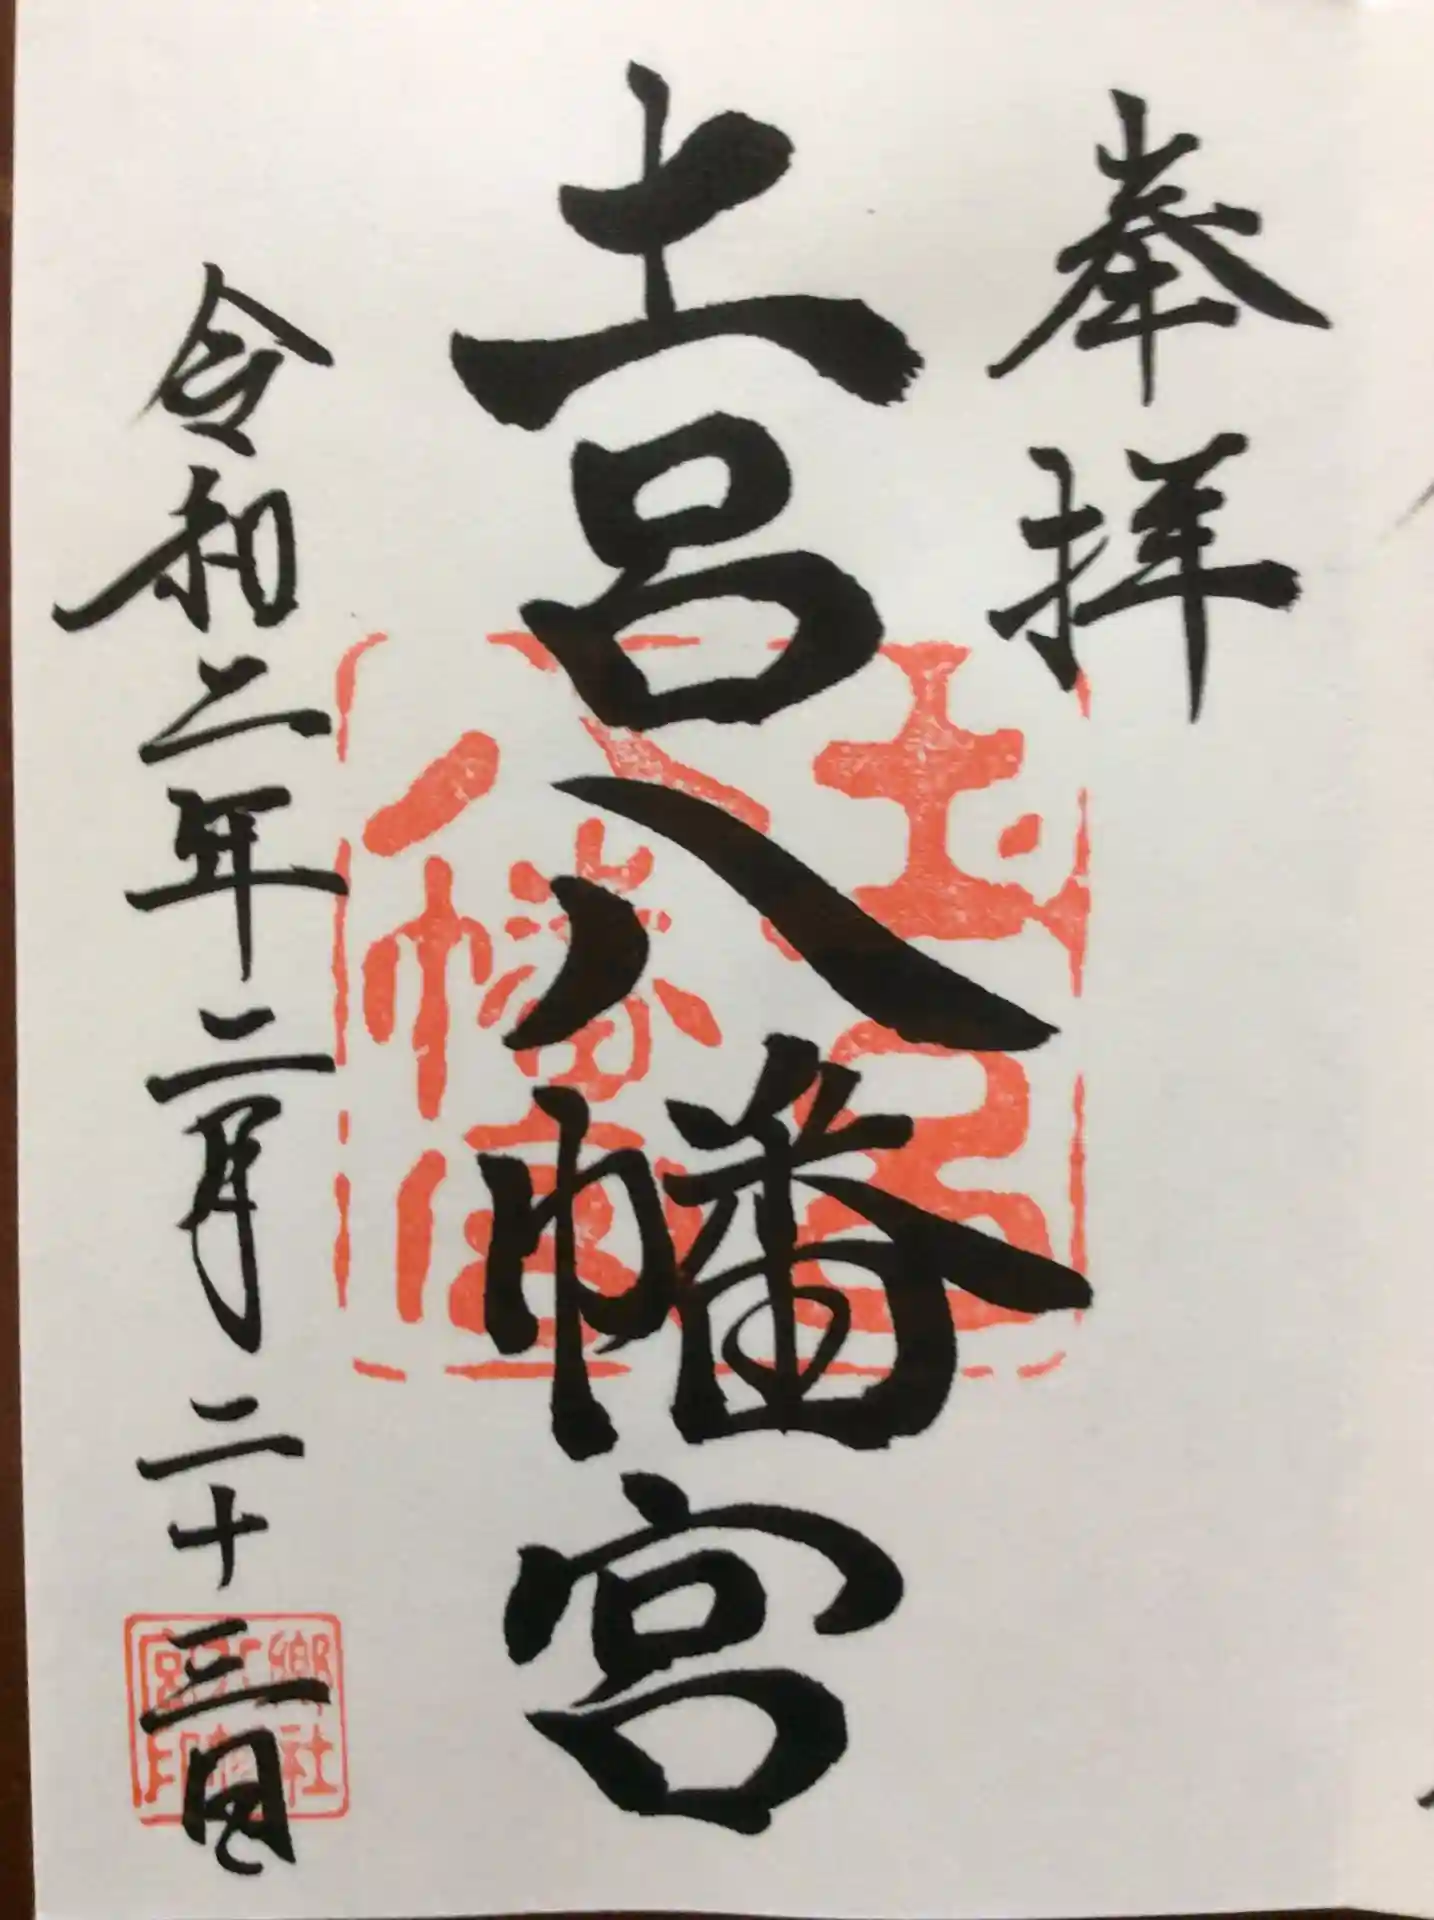 奉拝
土呂八幡宮
令和二年二月二十三日
土呂
八幡宮
郷社
八幡
宮印